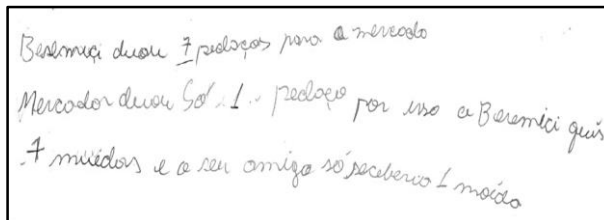 Beremiçi duou 7 pedaços para o mercado
Mercador duou Só 1 pedaço por isso a Beremiçi quis
7 muédas e o seu amigo só receberia 1 moéda